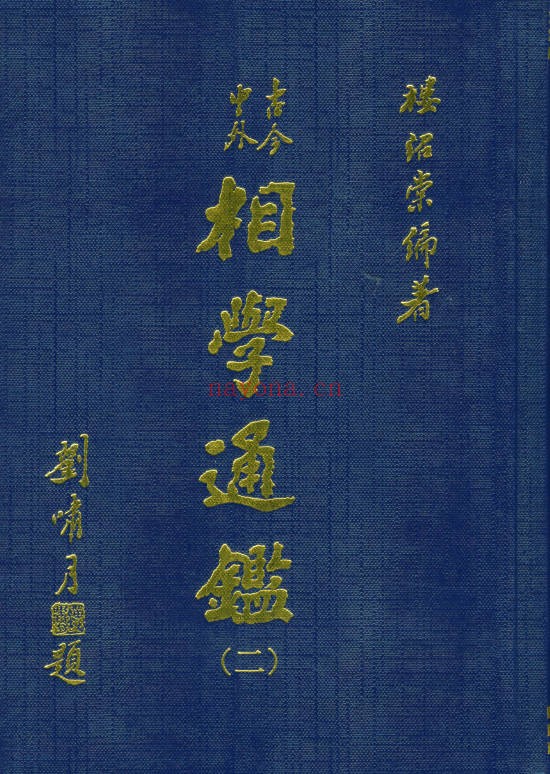 樓紹棠編著
古今
中外
相學通鑑
(二)
劉嘯月
題
nayona.cn